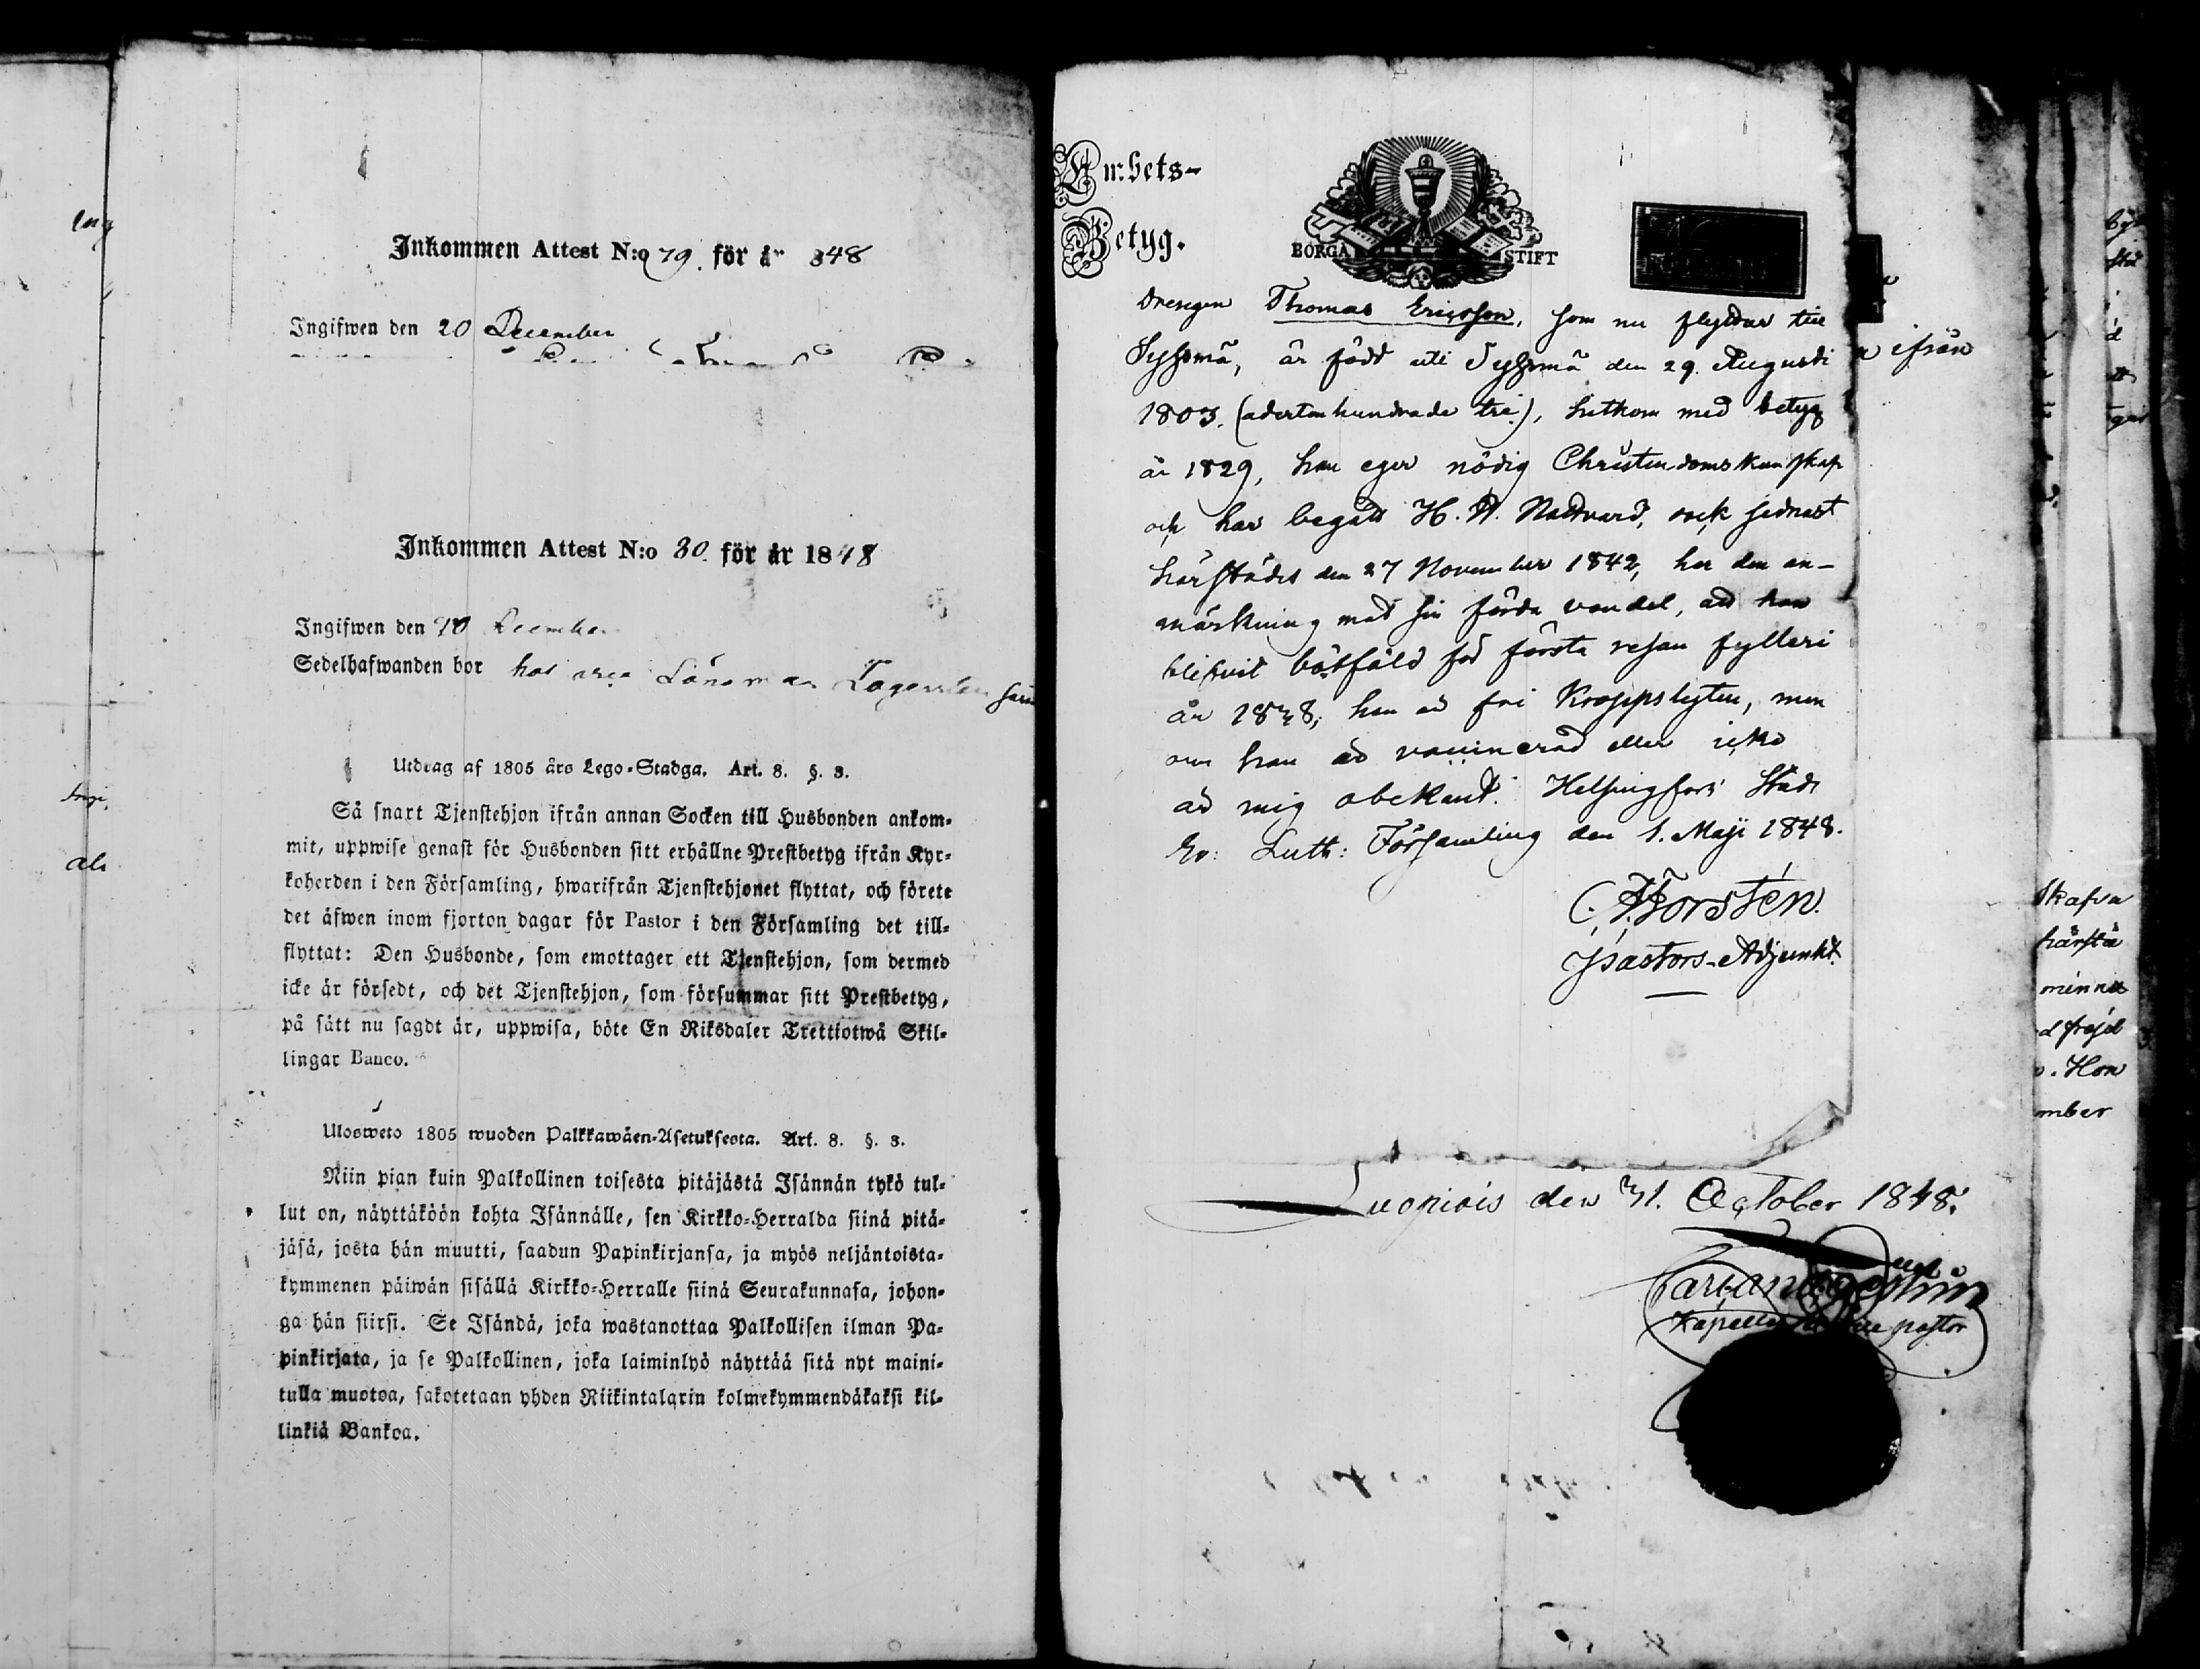 Inkommen Attest N:o 79. för år 848
Ingifwen den 20 December
Inkommen Attest N:o 80. för år 1848
Ingifwen den 20 December
Sedelhafwanden bor hos Länsman
Utdrag af 1805 års Lego-Stadga. Art. 8. §. 3.
Så snart Tjenstehjon ifrån annan Socken till Husbonden ankom-
mit, uppwise genast för Husbonden sitt erhållne Prestbetyg ifrån Kyr-
koherden i den Församling, hwarifrån Tjenstehjonet flyttat, och förete
det äfwen inom fjorton dagar för Pastor i den Församling det till-
flyttat: Den Husbonde, som emottager ett Tjenstehjon, som dermed
icke är försedt, och det Tjenstehjon, som försummar sitt Prestbetyg,
på sätt nu sagdt är, uppwisa, böte En Riksdaler Trettiotwå Skil-
lingar Banco.
Ulosweto 1805 wuoden Palkkawäen-Asetuksesta. Art. 8. §. 3.
Niin pian kuin Palkollinen toisesta pitäjästä Isännän tykö tul-
lut on, näyttäköön kohta Isännälle, sen Kirkko-Herralda siinä pitä-
jäsä, josta hän muutti, saadun Papinkirjansa, ja myös neljäntoista-
kymmenen päiwän sisällä Kirkko-Herralle siinä Seurakunnasa, johon-
ga hän siirsi. Se Isändä, joka wastanottaa Palkollisen ilman Pa-
pinkirjata, ja se Palkollinen, joka laiminlyö näyttää sitä nyt maini-
tulla muotoa, sakotetaan yhden Riikintalarin kolmekymmendäkaksi kil-
linkiä Bankoa.
Embets-
Betyg.
BORGÅ STIFT
Drengen Thomas Ericsson, som nu flyttar till
Sysmä, är född uti Sysmä den 29. Augusti
1803. (adertonhundrade tre), hitkom med betyg
år 1829, han eger nödig Christendomskunskap
och har begått H. H. Nattvard, ock sednast
härstädes den 27 November 1842, har den an-
märkning mot sin förda vandel, att han
blifvit bötfäld för första resan fylleri
år 1838; han är fri Kroppslyten, men
om han är vaccinerad eller icke
är mig obekant. Helsingfors Stads
Ev: Luth: Församling den 1. Maji 1848.
Forstén.
Pastors-Adjunkt.
ifrån
Luopiois den 31. October 1848.
pastor
skafva
härstä
minne
d frejd
. Hon
mber